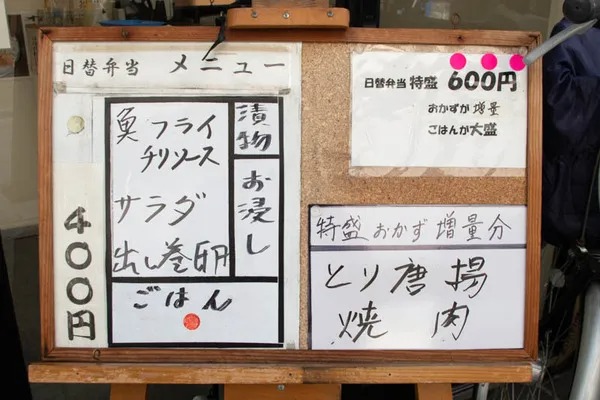 日替弁当 メニュー
400円
魚フライ
チリソース
サラダ
出し巻卵
漬物
お浸し
ごはん
日替弁当 特盛 600円
おかずが増量
ごはんが大盛
特盛おかず増量分
とり唐揚
焼肉